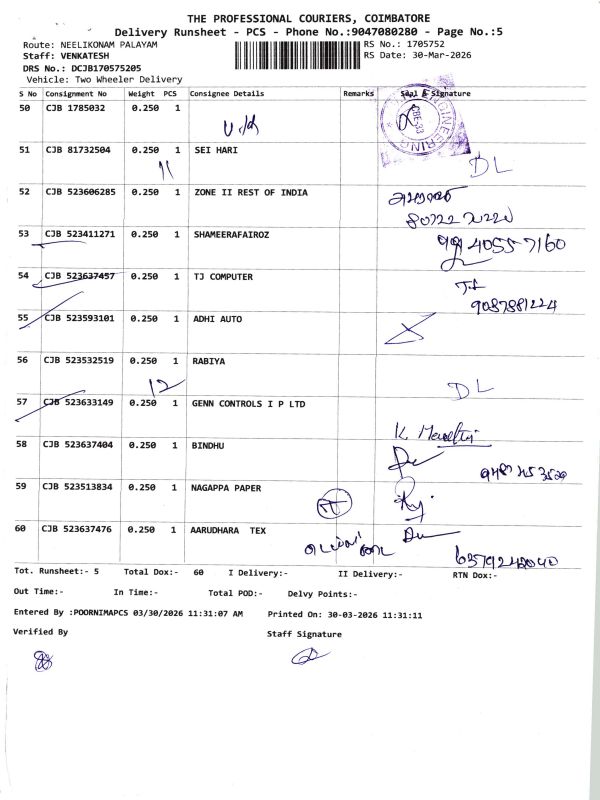 THE PROFESSIONAL COURIERS, COIMBATORE
Delivery Runsheet - PCS - Phone No.:9047080280 - Page No.:5
Route: NEELIKONAM PALAYAM
RS No.: 1705752
Staff: VENKATESH
RS Date: 30-Mar-2026
DRS No.: DCJB170575205
Vehicle: Two Wheeler Delivery
S No Consignment No Weight PCS Consignee Details Remarks Seal & Signature
50 CJB 1785032 0.250 1
ENGINEERING
CBE-33
51 CJB 81732504 0.250 1 SEI HARI
11
DL
52 CJB 523606285 0.250 1 ZONE II REST OF INDIA
53 CJB 523411271 0.250 1 SHAMEERAFAIROZ
99 4055 7160
54 CJB 523637457 0.250 1 TJ COMPUTER
TJ
9087881224
55 CJB 523593101 0.250 1 ADHI AUTO
56 CJB 523532519 0.250 1 RABIYA
12
DL
57 CJB 523633149 0.250 1 GENN CONTROLS I P LTD
58 CJB 523637404 0.250 1 BINDHU
59 CJB 523513834 0.250 1 NAGAPPA PAPER
60 CJB 523637476 0.250 1 AARUDHARA TEX
Tot. Runsheet:- 5 Total Dox:- 60 I Delivery:- II Delivery:- RTN Dox:-
Out Time:- In Time:- Total POD:- Delvy Points:-
Entered By :POORNIMAPCS 03/30/2026 11:31:07 AM Printed On: 30-03-2026 11:31:11
Verified By Staff Signature